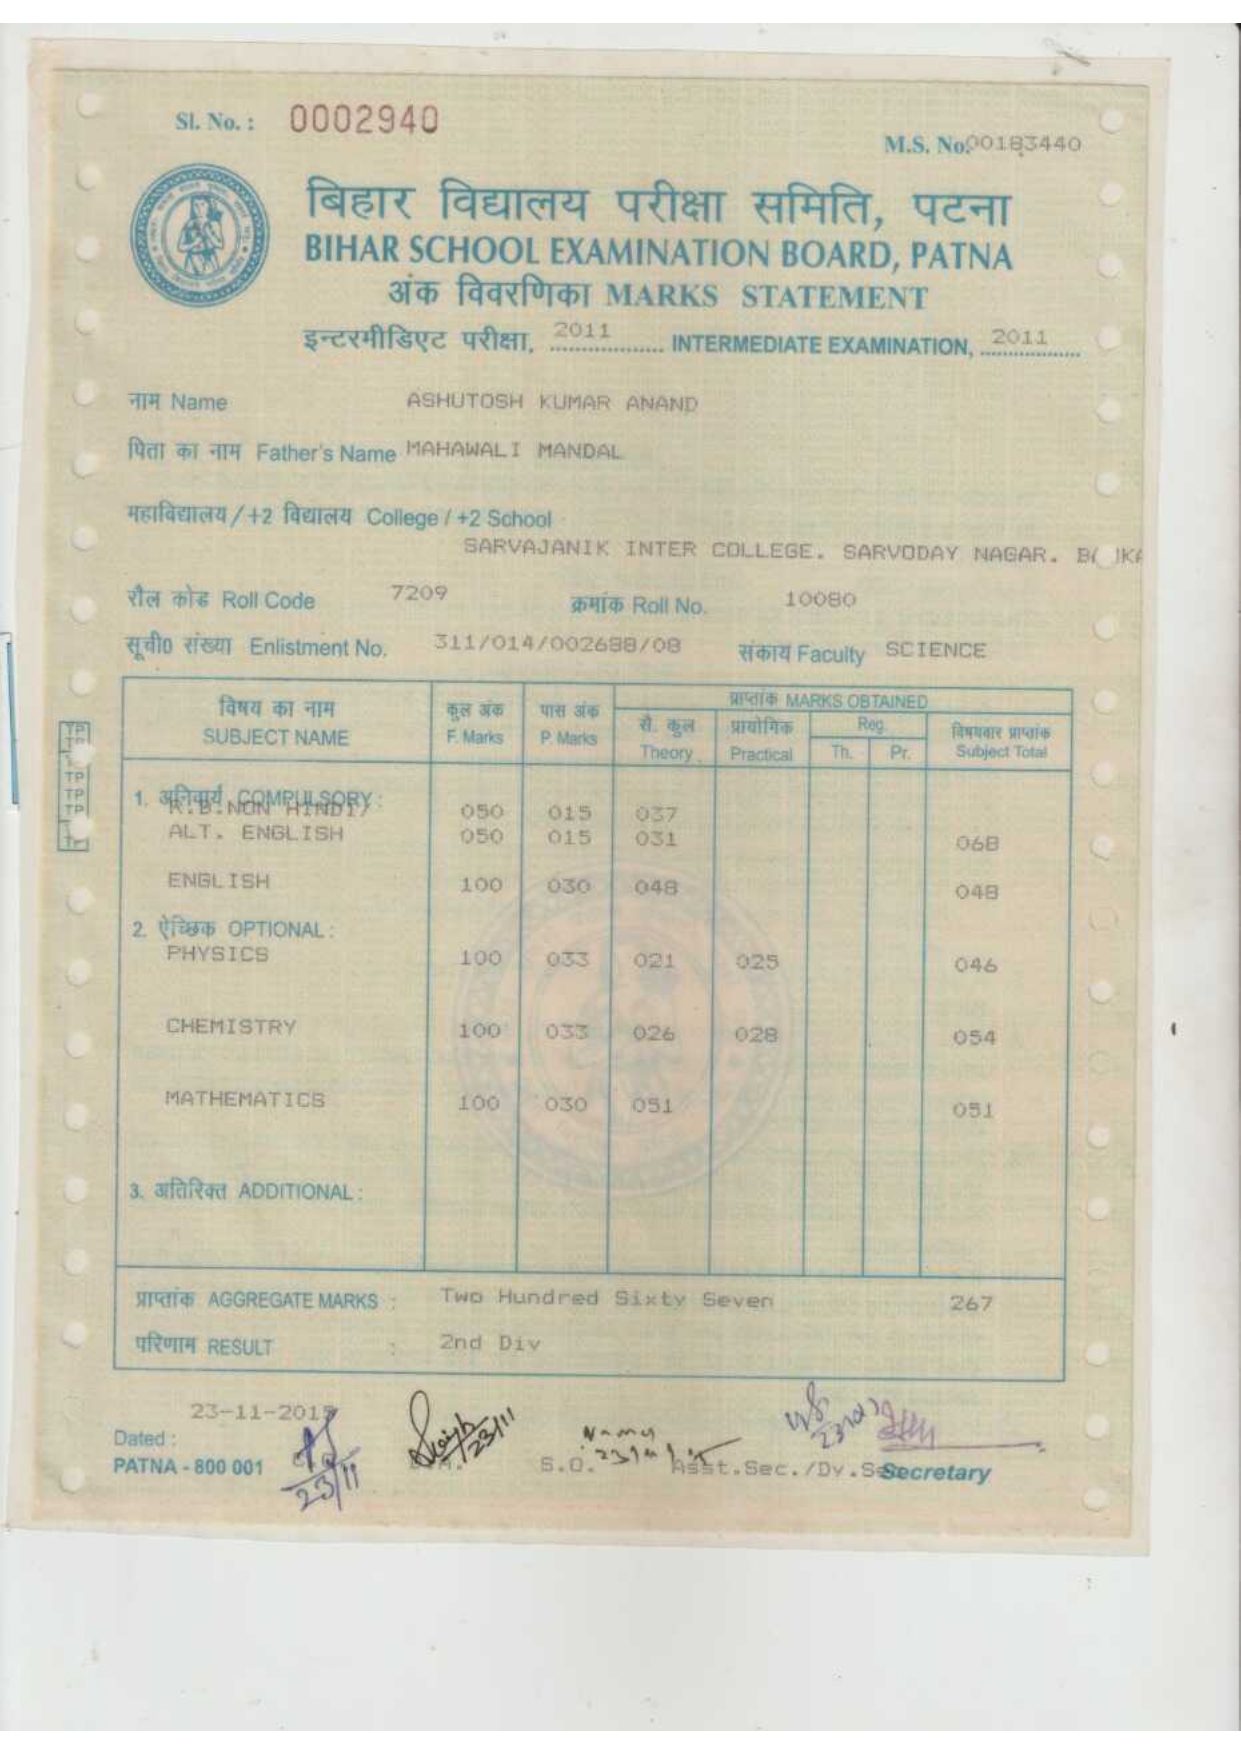 Sl. No. : 0002940
M.S. No. 00183440
बिहार विद्यालय परीक्षा समिति, पटना
BIHAR SCHOOL EXAMINATION BOARD, PATNA
अंक विवरणिका MARKS STATEMENT
इन्टरमीडिएट परीक्षा, 2011 INTERMEDIATE EXAMINATION, 2011
नाम Name ASHUTOSH KUMAR ANAND
पिता का नाम Father's Name MAHAWALI MANDAL
महाविद्यालय/+2 विद्यालय College / +2 School
SARVAJANIK INTER COLLEGE. SARVODAY NAGAR.
रौल कोड Roll Code 7209 क्रमांक Roll No. 10080
सूची० संख्या Enlistment No. 311/014/002688/08 संकाय Faculty SCIENCE
विषय का नाम SUBJECT NAME कुल अंक F. Marks पास अंक P. Marks प्राप्तांक MARKS OBTAINED
सै. कुल Theory प्रायोगिक Practical Reg. Th. Pr. विषयवार प्राप्तांक Subject Total
1. अनिवार्य COMPULSORY :
R.B.NON HINDI/ 050 015 037
ALT. ENGLISH 050 015 031 068
ENGLISH 100 030 048 048
2. ऐच्छिक OPTIONAL :
PHYSICS 100 033 021 025 046
CHEMISTRY 100 033 026 028 054
MATHEMATICS 100 030 051 051
3. अतिरिक्त ADDITIONAL :
प्राप्तांक AGGREGATE MARKS : Two Hundred Sixty Seven 267
परिणाम RESULT : 2nd Div
23-11-2015
Dated :
PATNA - 800 001 23/11 23/11 S.O. Asst.Sec./Dy.Sec Secretary